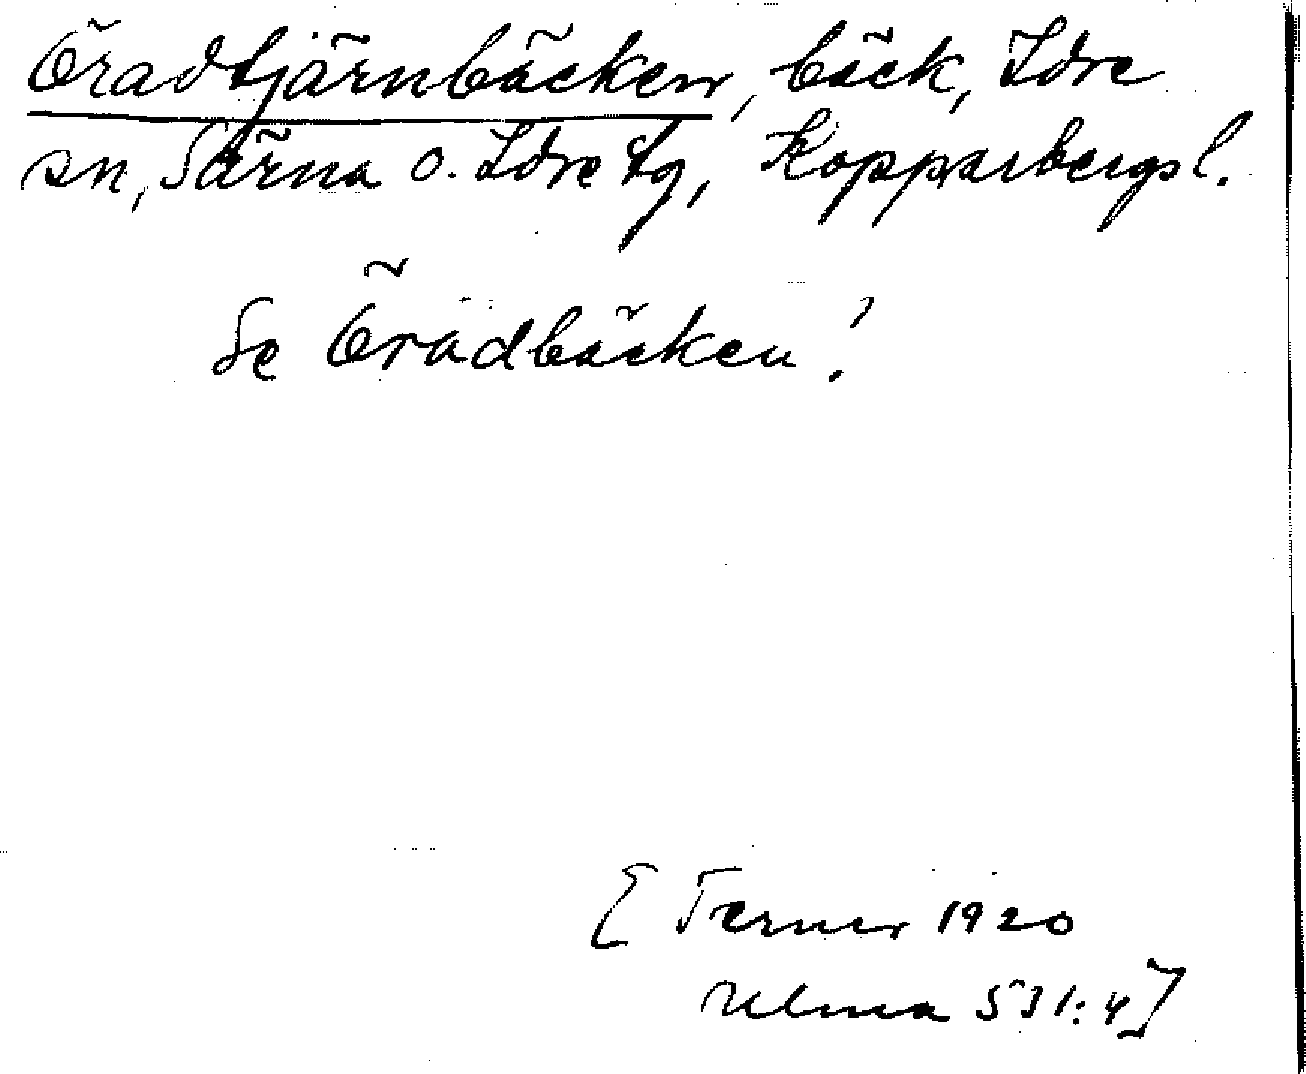 Öradtjärnbäcken, bäck, Idre
sn, Särna o. Idre tg, Kopparbergs l.
Se Öradbäcken!
[Terner 1920
Ulma 531:4]